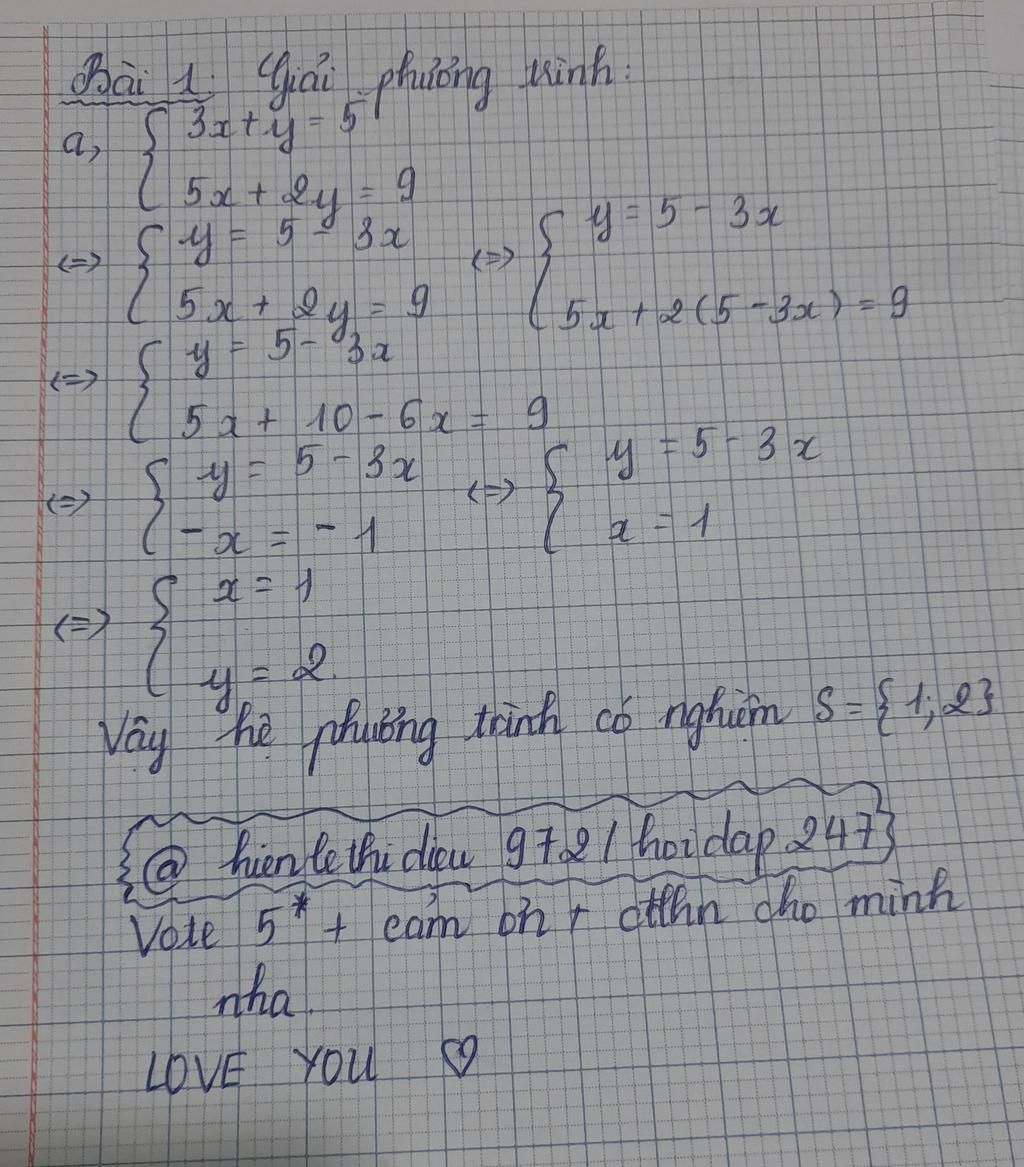 Bài 1: Giải phương trình:
a, { 3x + y = 5
5x + 2y = 9
<=> { y = 5 - 3x <=> { y = 5 - 3x
5x + 2y = 9 5x + 2(5 - 3x) = 9
<=> { y = 5 - 3x
5x + 10 - 6x = 9
<=> { y = 5 - 3x <=> { y = 5 - 3x
-x = -1 x = 1
<=> { x = 1
y = 2.
Vậy hệ phương trình có nghiệm S = {1; 2}
{@ hienlethidieu 9721 hoidap247}
Vote 5* + cảm ơn + ctlhn cho mình
nha.
LOVE YOU ♡